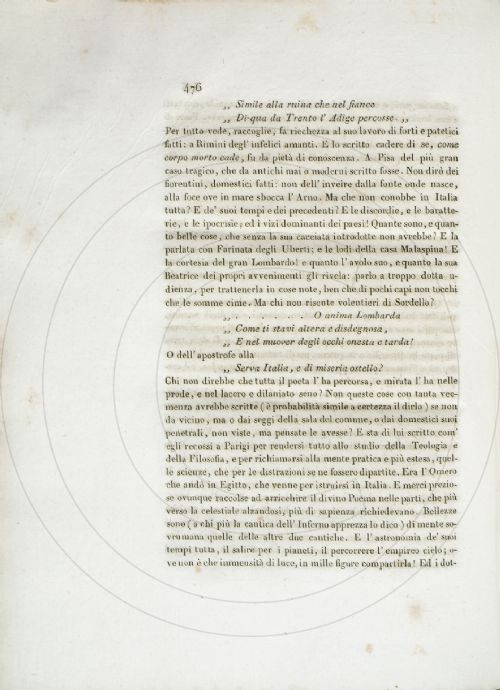 476
„ Simile alla ruina che nel fianco
„ Di qua da Trento l' Adige percosse. „
Per tutto vede, raccoglie, fa ricchezza al suo lavoro di forti e patetici
fatti: a Rimini degl' infelici amanti. E lo scritto cadere di se, come
corpo morto cade, fu da pietà di conoscenza. A Pisa del più gran
caso tragico, che da antichi mai o moderni scritto fosse. Non dirò dei
fiorentini, domestici fatti: non dell' inveire dalla fonte onde nasce,
alla foce ove in mare sbocca l' Arno. Ma che non conobbe in Italia
tutta? E de' suoi tempi e dei precedenti? E le discordie, e le baratte-
rie, e le ipocrisie, ed i vizi dominanti dei paesi! Quante sono, e quan-
to belle cose, che senza la sua cacciata introdotte non avrebbe? E la
parlata con Farinata degli Uberti: e le lodi della casa Malaspina! E
la cortesia del gran Lombardo! e quanto l' avolo suo, e quanto la sua
Beatrice dei propri avvenimenti gli rivela: parlo a troppo dotta u-
dienza, per trattenerla in cose note, ben che di pochi capi non tocchi
che le somme cime. Ma chi non risente volentieri di Sordello?
„ . . . . . . O anima Lombarda
„ Come ti stavi altera e disdegnosa,
„ E nel muover degli occhi onesta e tarda!
O dell' apostrofe alla
„ Serva Italia, e di miseria ostello?
Chi non direbbe che tutta il poeta l' ha percorsa, e mirata l' ha nelle
prode, e nel lacero e dilaniato seno? Non queste cose con tanta vee-
menza avrebbe scritte ( è probabilità simile a certezza il dirlo ) se non
da vicino, ma o dai seggi della sala del comune, o dai domestici suoi
penetrali, non viste, ma pensate le avesse? E sta di lui scritto com'
egli recossi a Parigi per rendersi tutto allo studio della Teologia e
della Filosofia, e per richiamarsi alla mente pratica e più estesa, quel-
le scienze, che per le distrazioni se ne fossero dipartite. Era l' Omero
che andò in Egitto, che venne per istruirsi in Italia. E merci prezio-
se ovunque raccolse ad arricchire il divino Poema nelle parti, che più
verso la celestiale alzandosi, più di sapienza richiedevano. Bellezze
sono ( a chi più la cantica dell' Inferno apprezza lo dico ) di mente so-
vrumana quelle delle altre due cantiche. E l' astronomia de' suoi
tempi tutta, il salire per i pianeti, il percorrere l' empireo cielo; o-
ve non è che immensità di luce, in mille figure compartirla! Ed i dot-